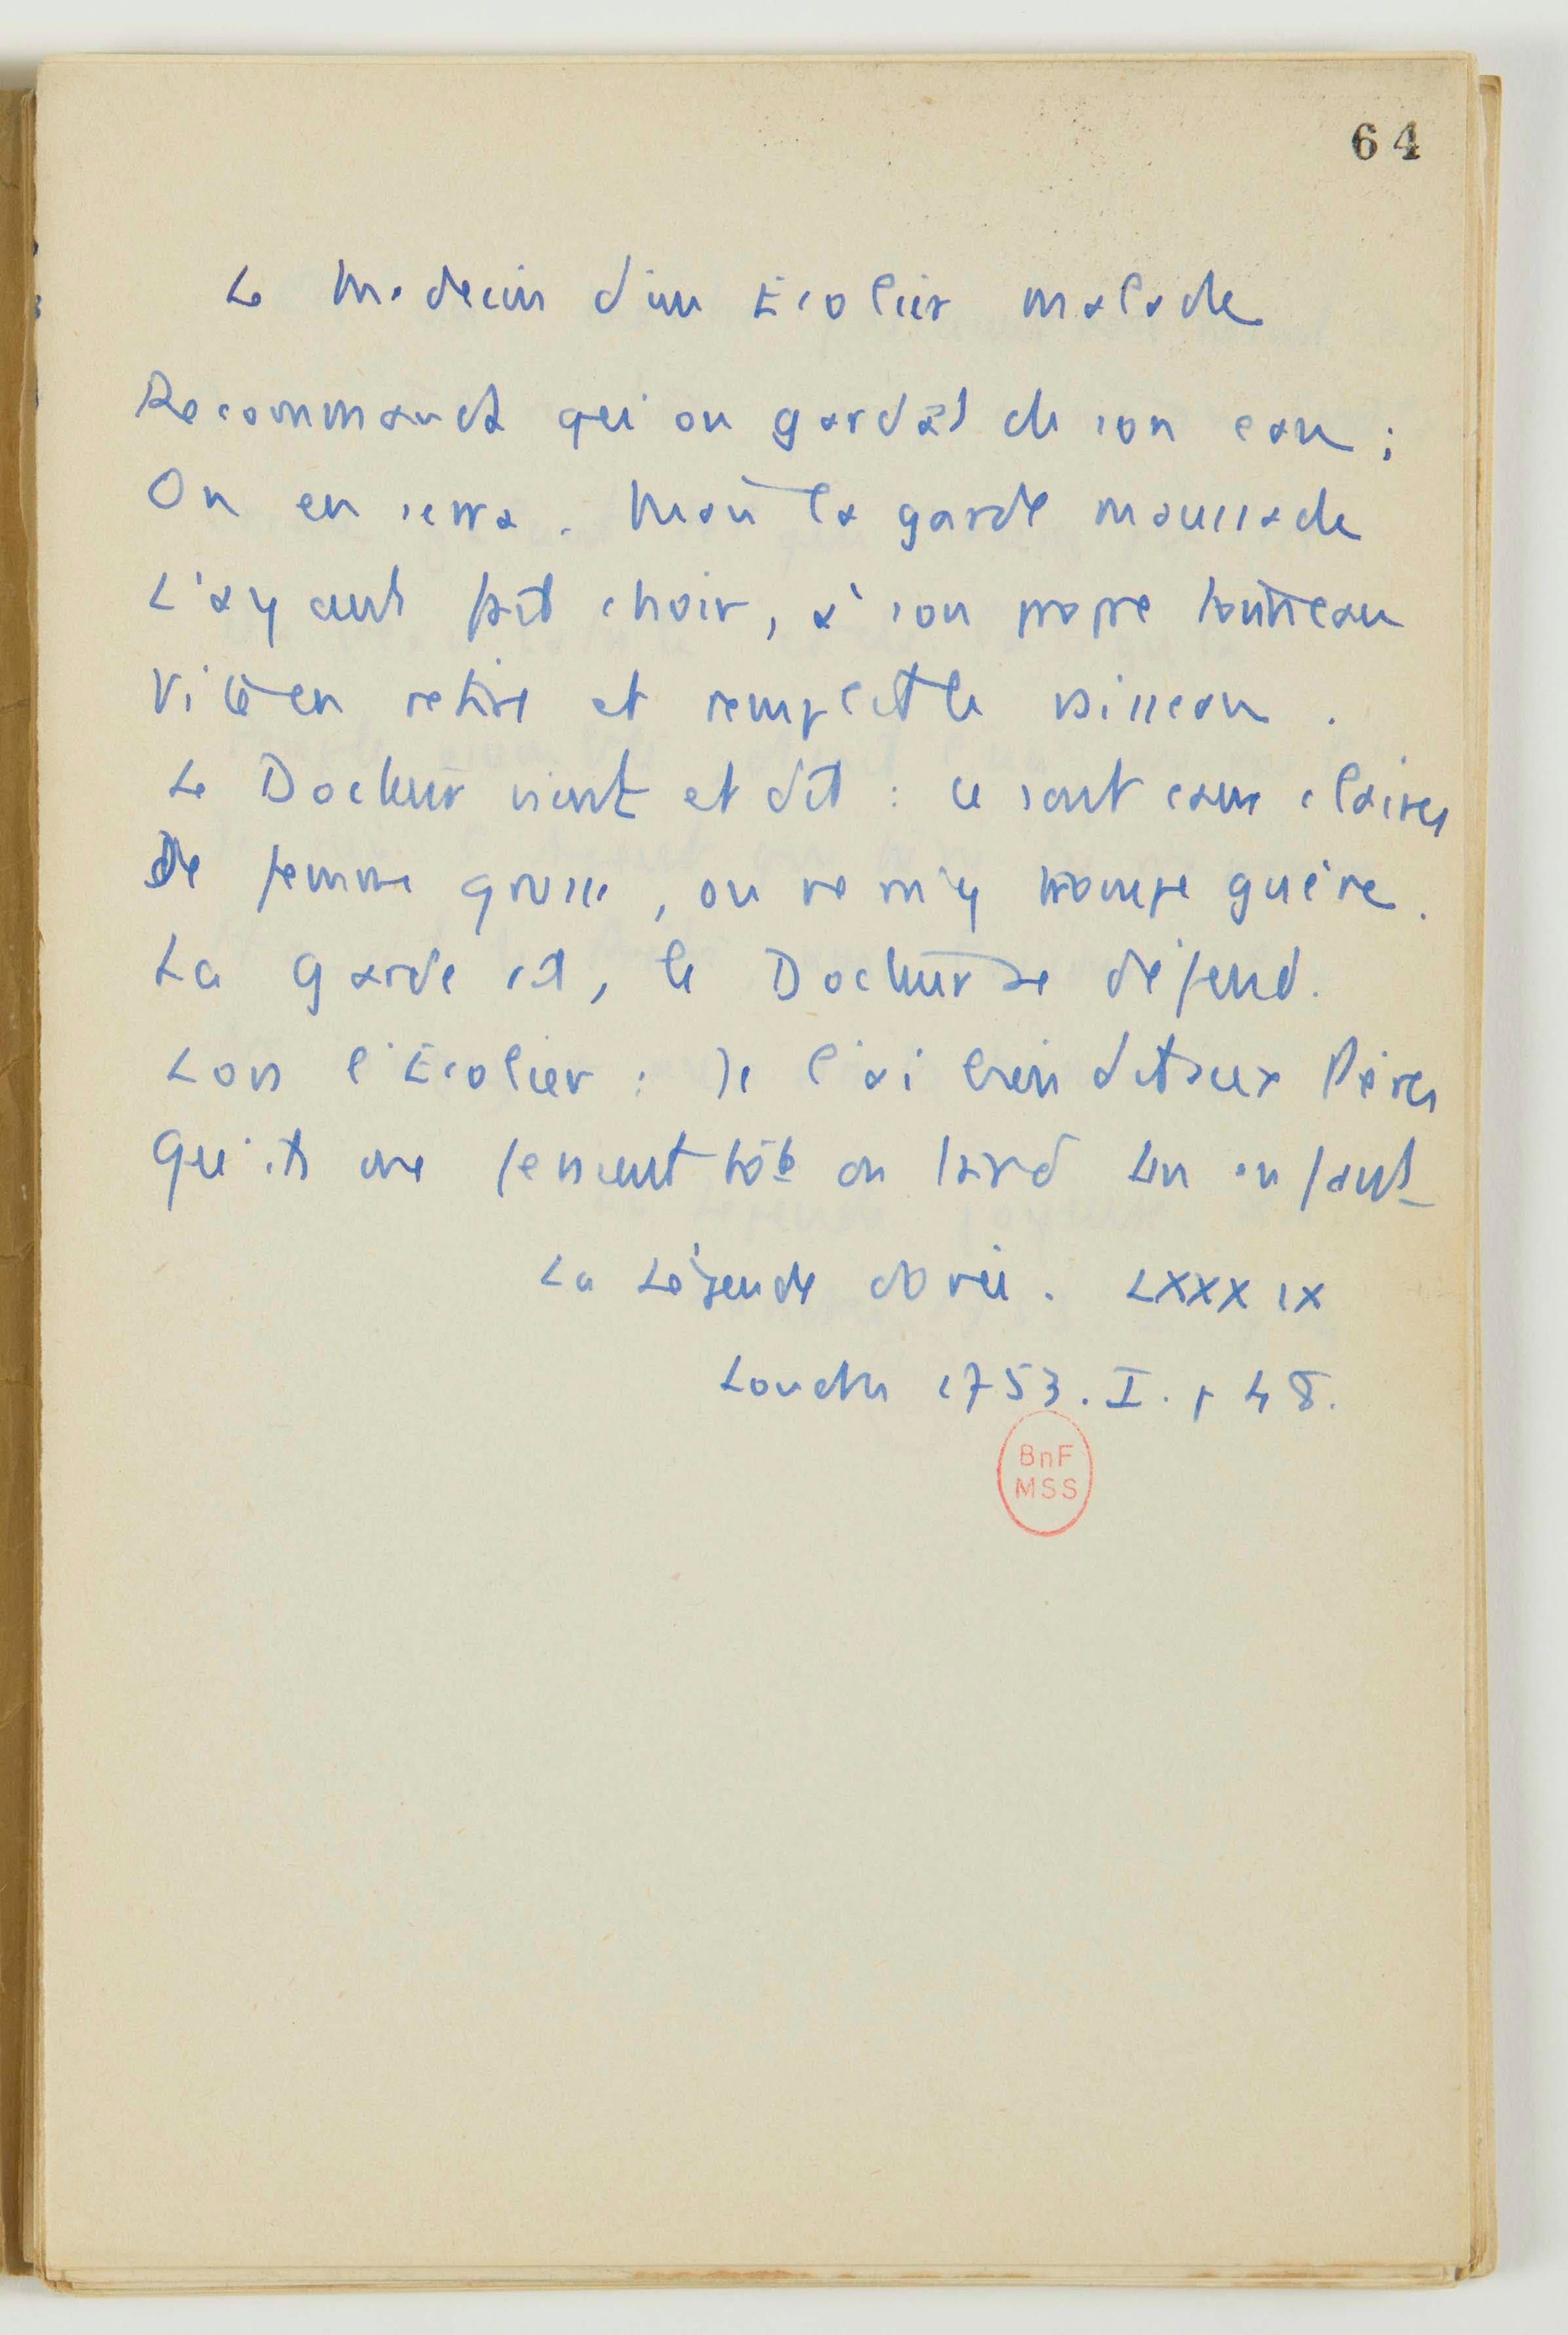 64
Le Medecin d'un Ecolier malade
Recommanda qu'on gardât de son eau ;
On en serra. Mais la garde maussade
L'ayant fait choir, à son propre tonneau
Vite en retire et remplit le vaisseau .
Le Docteur vient et dit : ce sont eaux claires
De femme grosse, on ne m'y trompe guère.
La garde rit, le Docteur se défend.
Lors l'Ecolier : Je l'ai bien dit aux Pères
Qu'ils me feraient tôt ou tard un enfant
La Légende dorée. LXXXIX
Londres 1753. I. p 48.
BnF
MSS